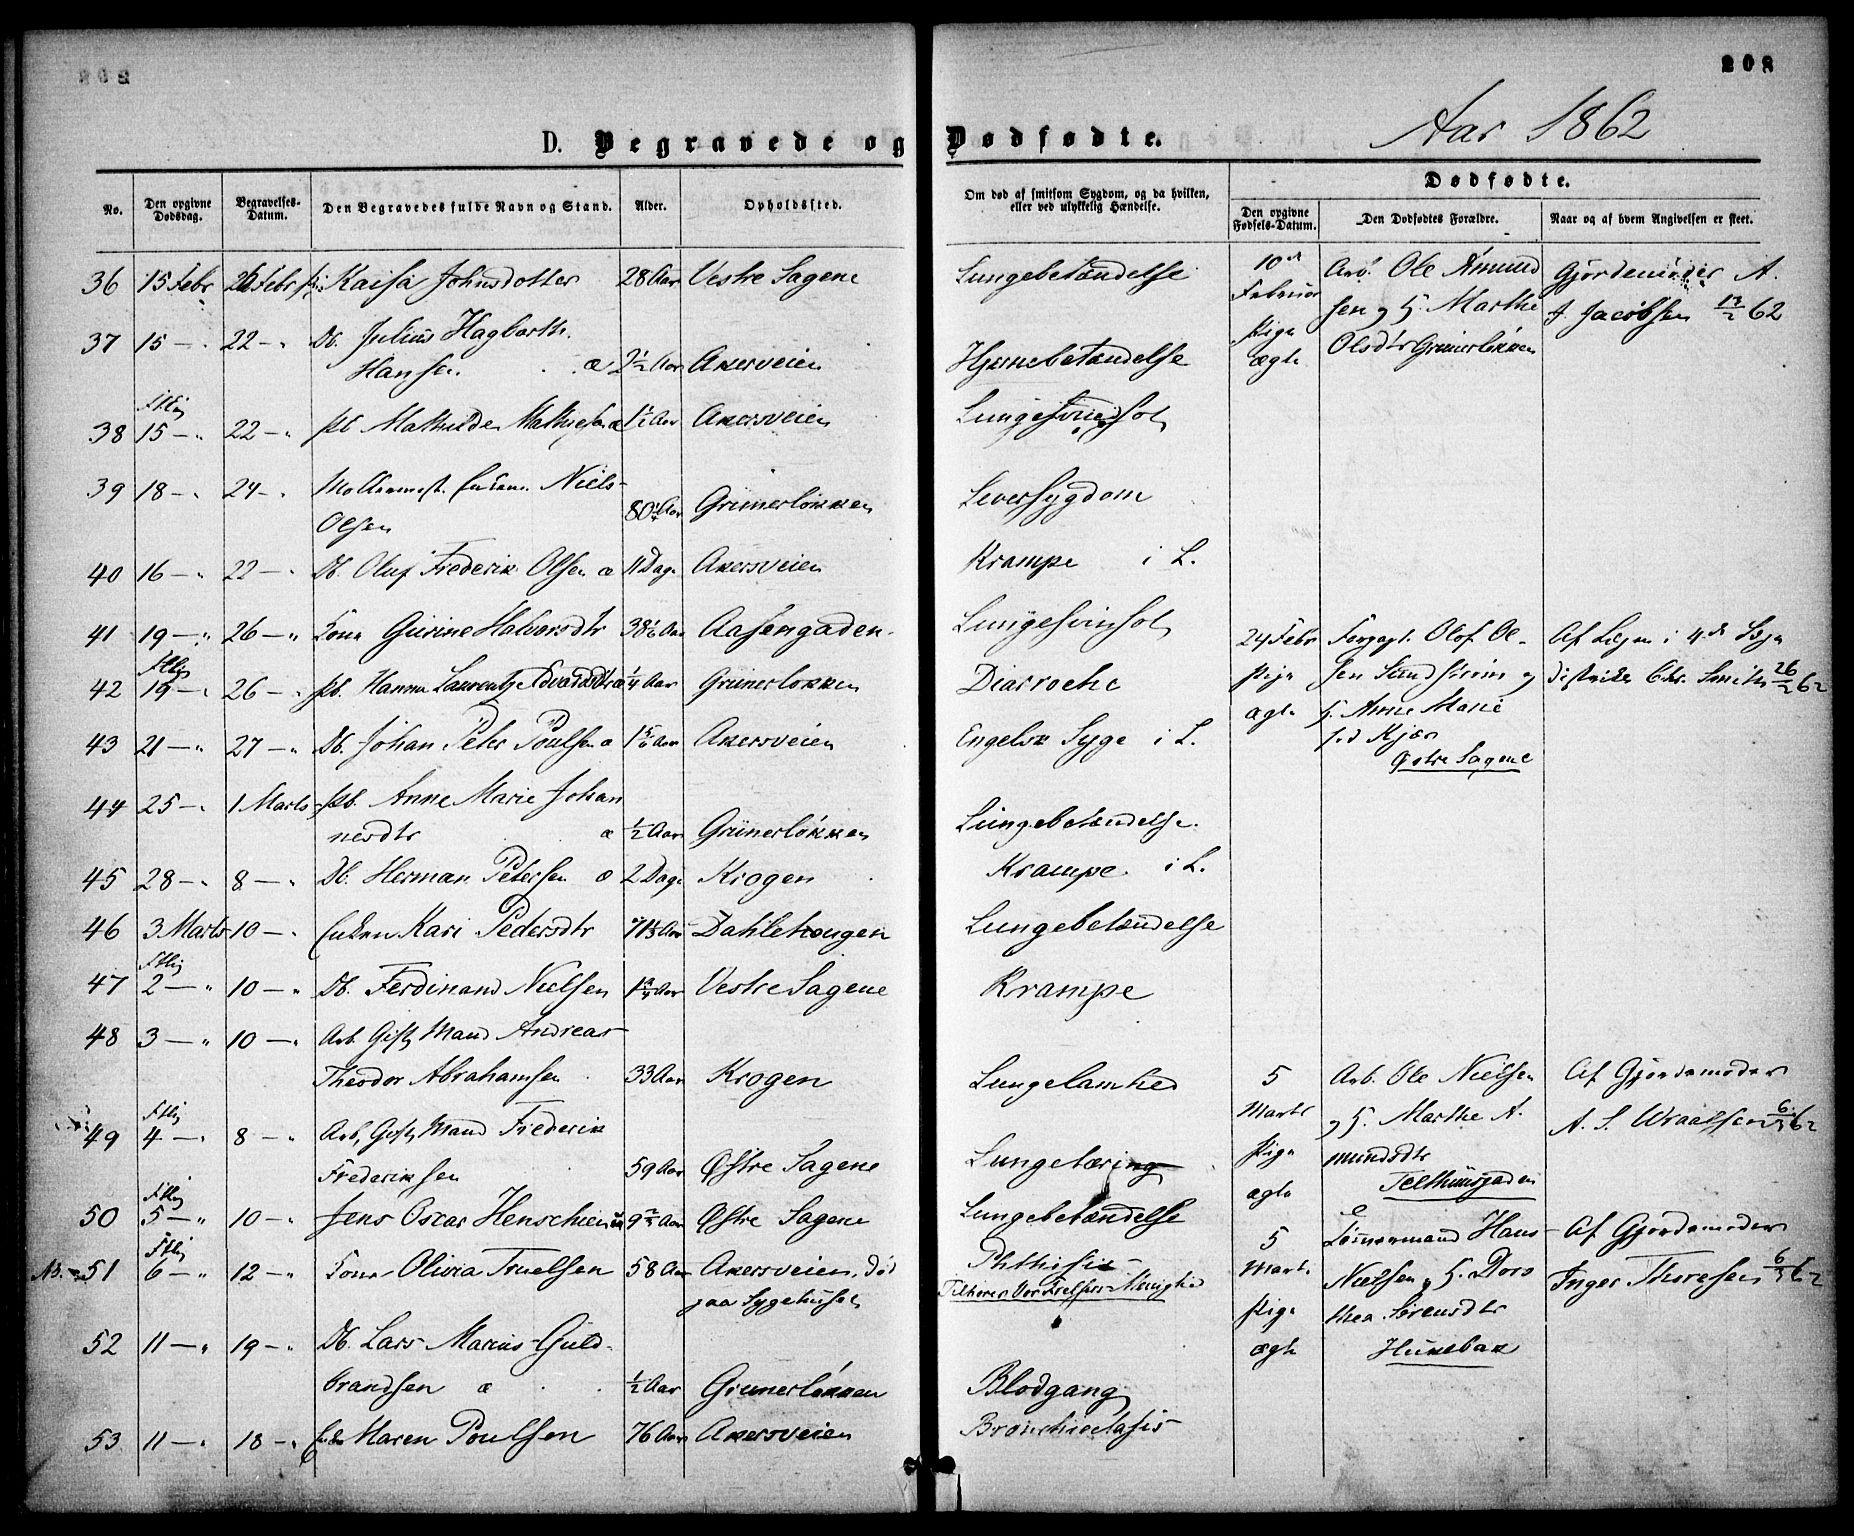 208
Aar 1862
D. Begravede og Dødfødte.
No.
Den opgivne Dødsdag.
Begravelses-Datum.
Den Begravedes fulde Navn og Stand.
Alder.
Opholdssted.
Om død af smitsom Sygdom, og da hvilken, eller ved ulykkelig Hændelse.
Dødfødte.
Den opgivne Fødsels-Datum.
Den Dødfødtes Forældre.
Naar og af hvem Angivelsen er skeet.
36 15 Febr 26 Febr Kaisa Johnsdotter 28 Aar Vestre Sagene Lungebetændelse
37 15 — " 22 — " Db. Julius Hagbarth
Hansen æ 2 1/2 Aar Akersveien Hjernebetændelse
38 15 — " 22 — " Pb Mathilde Mathisen æ 1 1/2 Aar Akersveien Lungesvindsot
39 18 — " 24 — " Niels
Olsen 80 1/4 Aar Grünerløkken Leversygdom
40 16 — " 22 — " Db. Oluf Frederik Olsen æ 11 Dage Akersveien Krampe i L.
41 19 — " 26 — " Kone Gurine Halvorsdtr 38 1/6 Aar Aasengaden Lungesvinsot
42 19 — " 26 — " Pb. Hanna Laurentze Edvardsdtr æ 1/4 Aar Grünerløkken Diarroche
43 21 — " 27 — " Db. Johan Peter Poulsen æ 1 5/6 Aar Akersveien Engelsk Syge i L.
44 25 — " 1 Marts Pb. Anne Marie Johan
nesdtr æ 1/2 Aar Grünerløkken Lungebetændelse
45 28 — " 8 — " Db. Herman Petersen æ 2 Dage Krogen Krampe i L.
46 3 Marts 10 — " Enken Kari Pedersdtr 71 Aar Dahlehougen Lungebetændelse
47 2 — " 10 — " Db. Ferdinand Nielsen 1 3/4 Aar Vestre Sagene Krampe
48 3 — " 10 — " Arb. Gift Mand Andreas
Theodor Abrahamsen 33 Aar Krogen Lungelamhed
49 4 — " 8 — " Arb. Gift Mand Frederik
Frederiksen 59 Aar Østre Sagene Lungetæring
50 5 — " 10 — " Jens Oscar Henschien 9 Aar Østre Sagene Lungebetændelse
NB. 51 6 — " 12 — " Kone Olivia Truelsen 58 Aar Akersveien, død
paa Sygehuset Phthisis
Tilhører Vor Frelsers Menighed
52 11 — " 19 — " Db. Lars Marius Guld-
brandsen æ 1/2 Aar Grünerløkken Blodgang
53 11 — " 18 — " Enke Maren Poulsen 76 Aar Akersveien Bronchiectasis
10de Februar Pige ægte
Arb. Ole Amund
sen og H. Marthe
Olsdtr Grünerløkken
Gjordemoder A.
J. Jacobsen 13/2 62
24 Febr Pige ægte
Olof Ol-
sen Sandström og
H. Anne Marie
fød Kjær
Østre Sagene
Af Lægen i 4de Læge
distrikt Chr. Smith 26/2 62
5 Marts Pige ægte
Arb. Ole Nielsen
og H. Marthe A.
mundsdtr
Telthusgaden
Af Gjordemoder
A. S. Wraalsen 6/3 62
5 Marts Pige ægte
Tømmermand Hans
Nielsen og H. Doro
thea Sørensdtr
Hukebak
Af Gjordemoder
Inger Thoresen 6/3 62